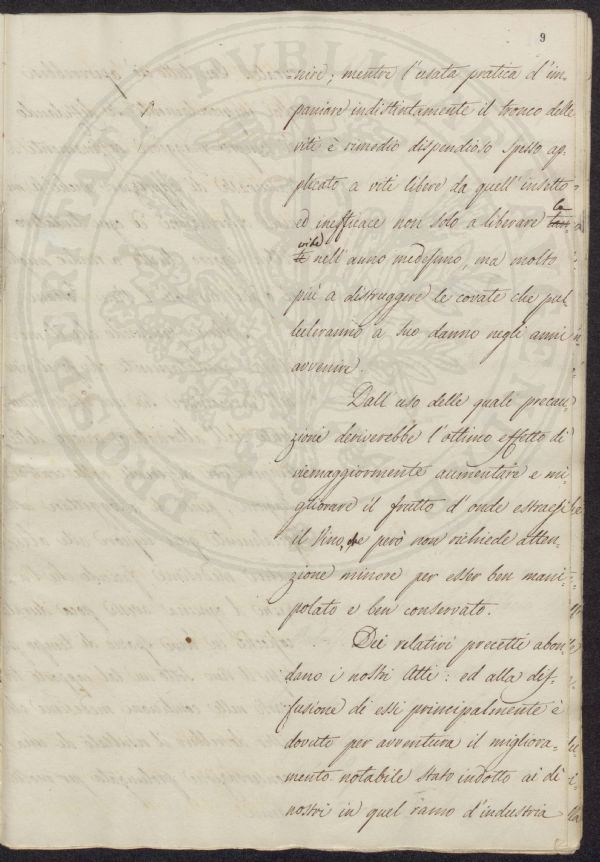 9
=nire; mentre l'usata pratica d'im-
paniare indistintamente il tronco delle
viti è rimedio dispendioso spesso ap-
plicato a viti libere da quell'insetto
ed inefficace non solo a liberare la
vite nell'anno medesimo, ma molto
più a distruggere le covate che pul-
luleranno a suo danno negli anni
avvenire.
Dall'uso delle quali precau-
zioni deriverebbe l'ottimo effetto di
viemaggiormente aumentare e mi-
gliorare il frutto d'onde estraesi
il Vino, che però non richiede atten-
zione minore per esser ben mani-
polato e ben conservato.
Dei relativi precetti abon-
dano i nostri Atti: ed alla dif-
fusione di essi principalmente è
dovuto per avventura il migliora-
mento notabile stato indotto ai dì
nostri in quel ramo d'industria